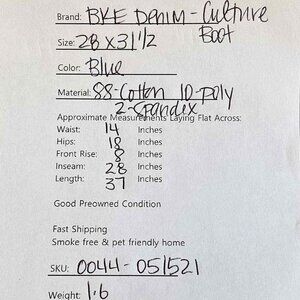 Brand: BKE Denim - Culture
Boot
Size: 28 x 31 1/2
Color: Blue
Material: 88-Cotton 10-poly
2-Spandex
Approximate Measurements Laying Flat Across:
Waist: 14 Inches
Hips: 18 Inches
Front Rise: 8 Inches
Inseam: 28 Inches
Length: 37 Inches
Good Preowned Condition
Fast Shipping
Smoke free & pet friendly home
SKU: 0044-051521
Weight: 1.6